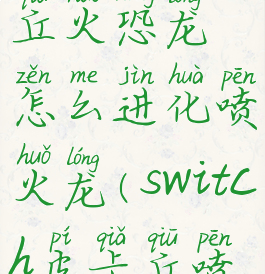 丘火恐龙
zěn me jìn huà pēn
怎么进化喷
huǒ lóng
火龙(switc
pí qiǎ qiū pēn
h皮卡丘喷